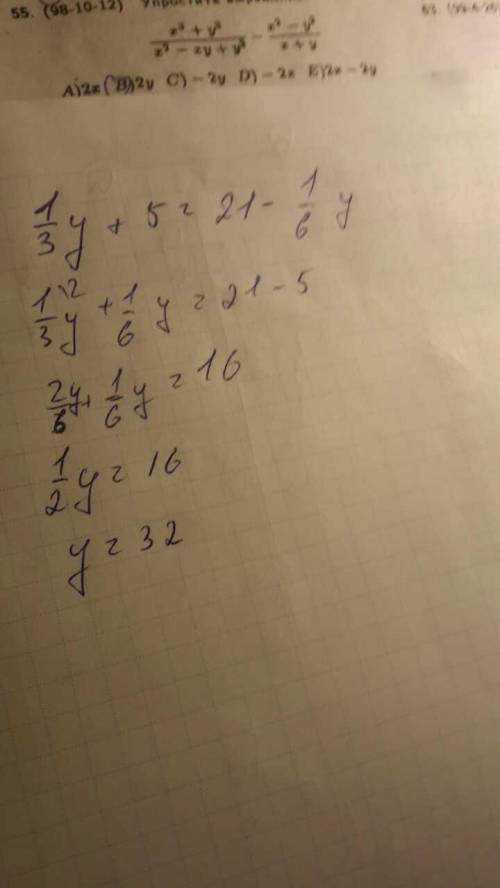 55. (98-10-12) Упростите
x³ + y³ / x² − xy + y² − x² − y² / x + y
A) 2x B) 2y C) − 2y D) − 2x E) 2x − 2y
1/3 y + 5 = 21 - 1/6 y
1/3 y \2 + 1/6 y = 21 - 5
2y/6 + 1/6 y = 16
1/2 y = 16
y = 32